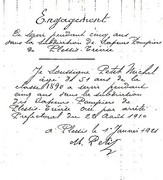 Engagement
De servir pendant cinq ans
dans la subdivision de Sapeurs Pompiers
de Plessis-Trévise
Je soussigné Petit Michel
âgé de 51 ans de la
classe 1890 à servir pendant
cinq ans dans la subdivision
des Sapeurs Pompiers de
Plessis par arrêté
Préfectoral du 20 Août 1910
à Plessis le 1er Janvier 1921
M. Petit